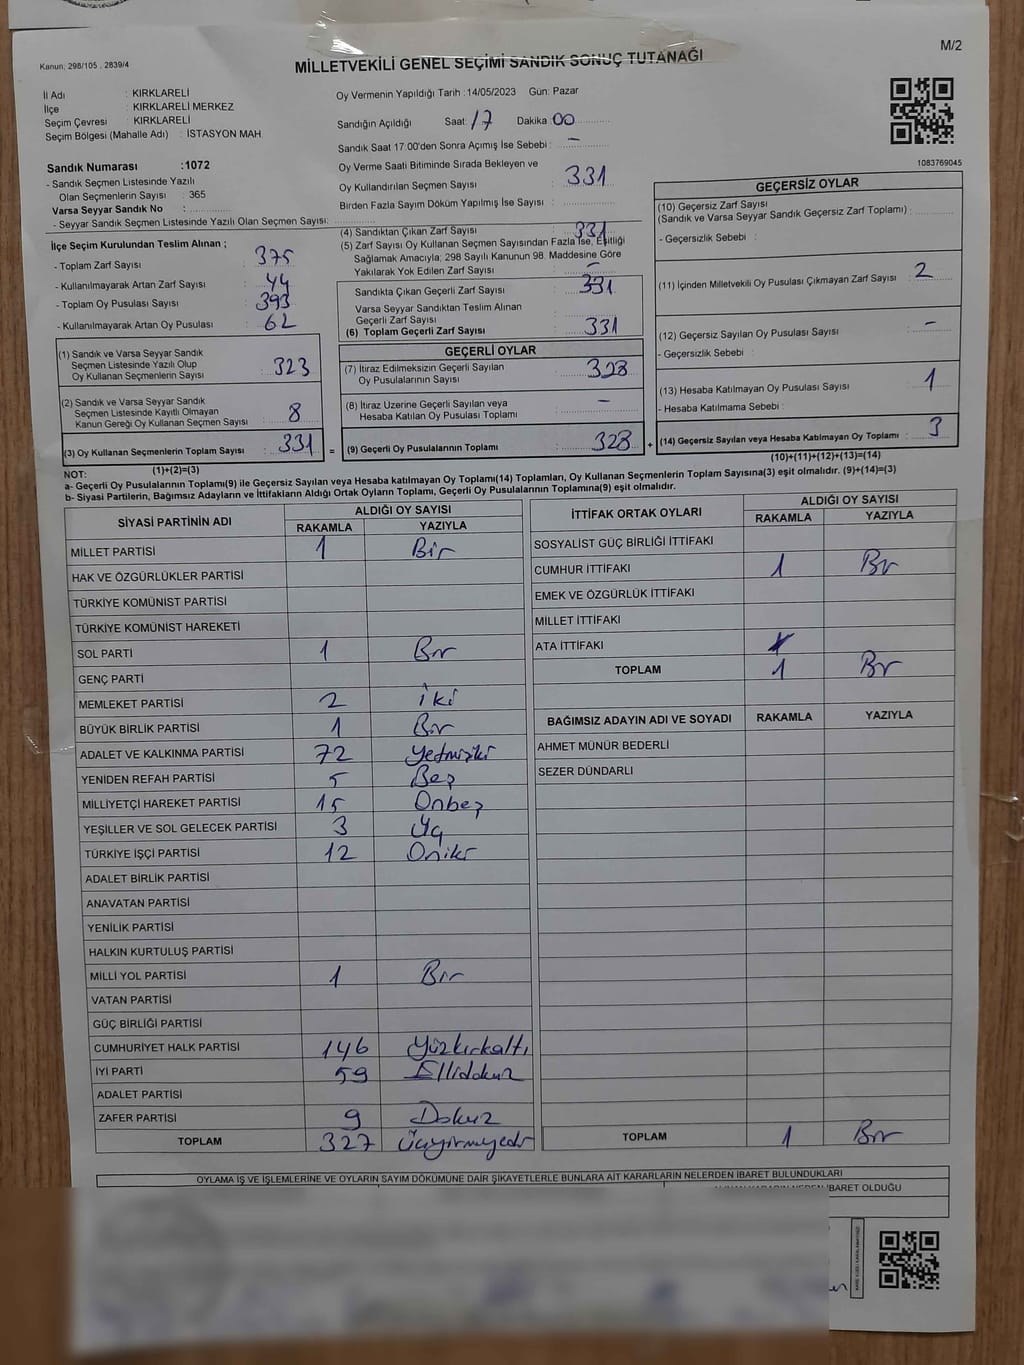 M/2
Kanun; 298/105 . 2839/4
MİLLETVEKİLİ GENEL SEÇİMİ SANDIK SONUÇ TUTANAĞI
İl Adı : KIRKLARELİ
İlçe : KIRKLARELİ MERKEZ
Seçim Çevresi : KIRKLARELİ
Seçim Bölgesi (Mahalle Adı) : İSTASYON MAH.
Sandık Numarası :1072
- Sandık Seçmen Listesinde Yazılı
Olan Seçmenlerin Sayısı : 365
Varsa Seyyar Sandık No :
- Seyyar Sandık Seçmen Listesinde Yazılı Olan Seçmen Sayısı:
Oy Vermenin Yapıldığı Tarih :14/05/2023 Gün: Pazar
Sandığın Açıldığı Saat: 17 Dakika 00
Sandık Saat 17:00'den Sonra Açımış İse Sebebi : -
Oy Verme Saati Bitiminde Sırada Bekleyen ve
Oy Kullandırılan Seçmen Sayısı : 331
Birden Fazla Sayım Döküm Yapılmış İse Sayısı :
1083769045
İlçe Seçim Kurulundan Teslim Alınan ;
- Toplam Zarf Sayısı : 375
- Kullanılmayarak Artan Zarf Sayısı : 44
- Toplam Oy Pusulası Sayısı : 393
- Kullanılmayarak Artan Oy Pusulası : 62
(1) Sandık ve Varsa Seyyar Sandık
Seçmen Listesinde Yazılı Olup
Oy Kullanan Seçmenlerin Sayısı : 323
(2) Sandık ve Varsa Seyyar Sandık
Seçmen Listesinde Kayıtlı Olmayan
Kanun Gereği Oy Kullanan Seçmen Sayısı : 8
(3) Oy Kullanan Seçmenlerin Toplam Sayısı : 331
(1)+(2)=(3)
(4) Sandıktan Çıkan Zarf Sayısı : 331
(5) Zarf Sayısı Oy Kullanan Seçmen Sayısından Fazla İse, Eşitliği
Sağlamak Amacıyla; 298 Sayılı Kanunun 98. Maddesine Göre
Yakılarak Yok Edilen Zarf Sayısı : -
Sandıkta Çıkan Geçerli Zarf Sayısı : 331
Varsa Seyyar Sandıktan Teslim Alınan
Geçerli Zarf Sayısı :
(6) Toplam Geçerli Zarf Sayısı : 331
GEÇERLİ OYLAR
(7) İtiraz Edilmeksizin Geçerli Sayılan
Oy Pusulalarının Sayısı : 328
(8) İtiraz Üzerine Geçerli Sayılan veya
Hesaba Katılan Oy Pusulası Toplamı : -
= (9) Geçerli Oy Pusulalarının Toplamı : 328 +
GEÇERSİZ OYLAR
(10) Geçersiz Zarf Sayısı
(Sandık ve Varsa Seyyar Sandık Geçersiz Zarf Toplamı) :
- Geçersizlik Sebebi :
(11) İçinden Milletvekili Oy Pusulası Çıkmayan Zarf Sayısı : 2
(12) Geçersiz Sayılan Oy Pusulası Sayısı : -
- Geçersizlik Sebebi :
(13) Hesaba Katılmayan Oy Pusulası Sayısı : 1
- Hesaba Katılmama Sebebi :
(14) Geçersiz Sayılan veya Hesaba Katılmayan Oy Toplamı : 3
(10)+(11)+(12)+(13)=(14)
NOT:
a- Geçerli Oy Pusulalarının Toplamı(9) ile Geçersiz Sayılan veya Hesaba katılmayan Oy Toplamı(14) Toplamları, Oy Kullanan Seçmenlerin Toplam Sayısına(3) eşit olmalıdır. (9)+(14)=(3)
b- Siyasi Partilerin, Bağımsız Adayların ve İttifakların Aldığı Ortak Oyların Toplamı, Geçerli Oy Pusulalarının Toplamına(9) eşit olmalıdır.
SİYASİ PARTİNİN ADI ALDIĞI OY SAYISI
RAKAMLA YAZIYLA
MİLLET PARTİSİ 1 Bir
HAK VE ÖZGÜRLÜKLER PARTİSİ
TÜRKİYE KOMÜNİST PARTİSİ
TÜRKİYE KOMÜNİST HAREKETİ
SOL PARTİ 1 Bir
GENÇ PARTİ
MEMLEKET PARTİSİ 2 İki
BÜYÜK BİRLİK PARTİSİ 1 Bir
ADALET VE KALKINMA PARTİSİ 72 Yetmişiki
YENİDEN REFAH PARTİSİ 5 Beş
MİLLİYETÇİ HAREKET PARTİSİ 15 Onbeş
YEŞİLLER VE SOL GELECEK PARTİSİ 3 Üç
TÜRKİYE İŞÇİ PARTİSİ 12 Oniki
ADALET BİRLİK PARTİSİ
ANAVATAN PARTİSİ
YENİLİK PARTİSİ
HALKIN KURTULUŞ PARTİSİ
MİLLİ YOL PARTİSİ 1 Bir
VATAN PARTİSİ
GÜÇ BİRLİĞİ PARTİSİ
CUMHURİYET HALK PARTİSİ 146 Yüzkırkaltı
İYİ PARTİ 59 Ellidokuz
ADALET PARTİSİ
ZAFER PARTİSİ 9 Dokuz
TOPLAM 327 Üçyirmiyedi
İTTİFAK ORTAK OYLARI ALDIĞI OY SAYISI
RAKAMLA YAZIYLA
SOSYALİST GÜÇ BİRLİĞİ İTTİFAKI
CUMHUR İTTİFAKI 1 Bir
EMEK VE ÖZGÜRLÜK İTTİFAKI
MİLLET İTTİFAKI
ATA İTTİFAKI
TOPLAM 1 Bir
BAĞIMSIZ ADAYIN ADI VE SOYADI RAKAMLA YAZIYLA
AHMET MÜNÜR BEDERLİ
SEZER DÜNDARLI
TOPLAM 1 Bir
OYLAMA İŞ VE İŞLEMLERİNE VE OYLARIN SAYIM DÖKÜMÜNE DAİR ŞİKAYETLERLE BUNLARA AİT KARARLARIN NELERDEN İBARET BULUNDUKLARI
İBARET OLDUĞU